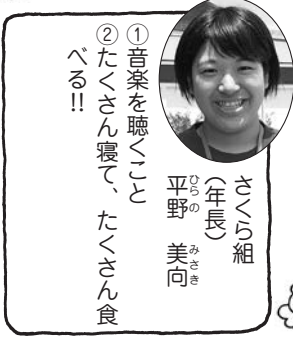 さくら組
（年長）
平野　美向
ひらの　みさき
①音楽を聴くこと
②たくさん寝て、たくさん食
べる!!